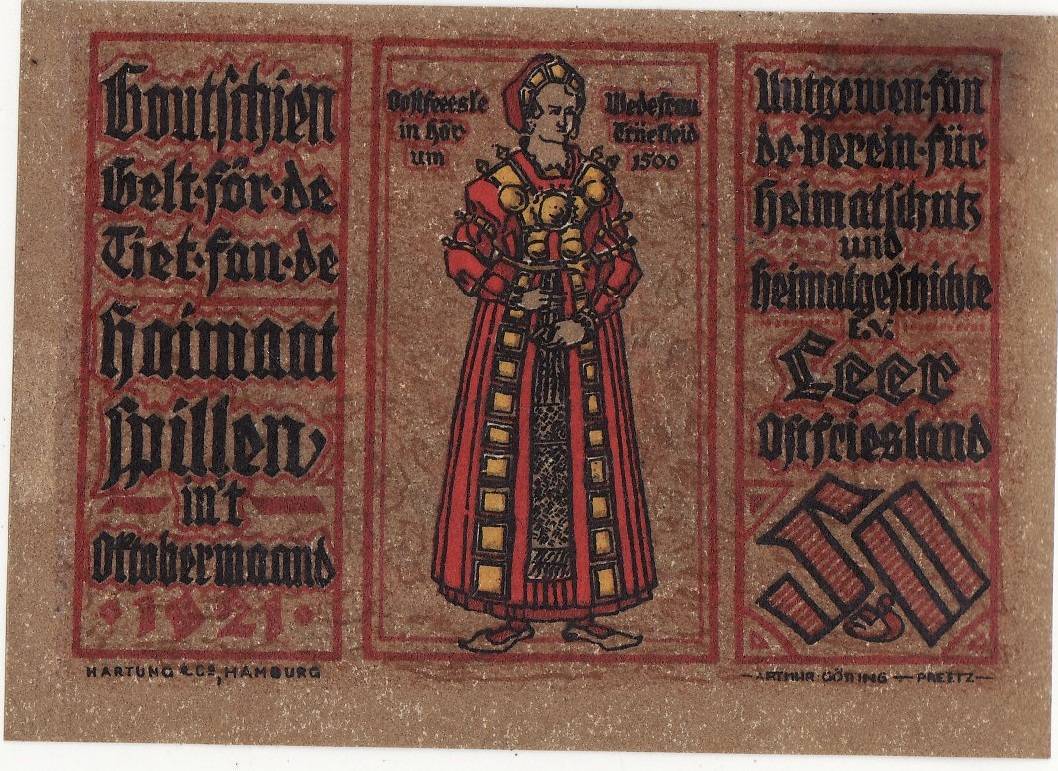 Goutschien
Gelt·för·de
Tiet·fan·de
Haimaat
spillen,
in't
Oktobermaand
·1921·
HARTUNG & Co, HAMBURG
Oostfreeske
in hör
um
Wedefrau
Trüekleid
1500
Uutgewen·fan
de·Verein·für
Heimatschutz
und
Heimatgeschichte
E.V.
Leer
Ostfriesland
ARTHUR GÖTING — PREETZ —